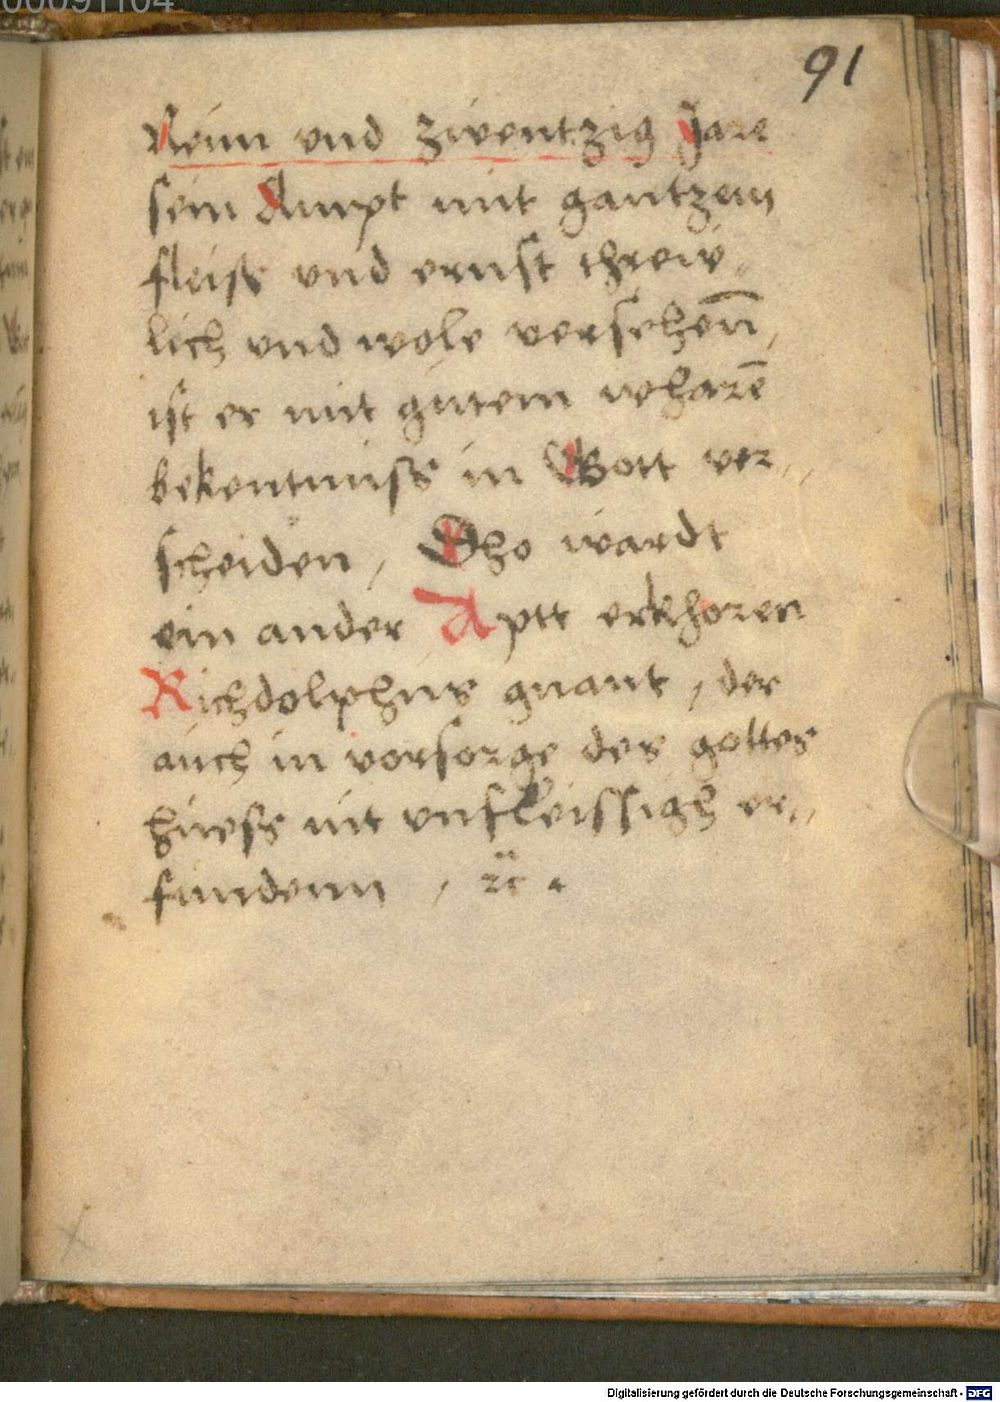 00091104
91
Neun und zwentzig Jare
sein Ampt mit gantzem
fleiss und ernst threw„
lich und wole versehen̄,
ist er mit gutem wharē
bekentniss in Gott ver„
scheiden, Dho wardt
ein ander Aptt erkhoren
Richdolphus gnant, der
auch in vorsorge des gottes
huess nit unfleissigh er„
fundenn, ꝛc.
Digitalisierung gefördert durch die Deutsche Forschungsgemeinschaft - DFG